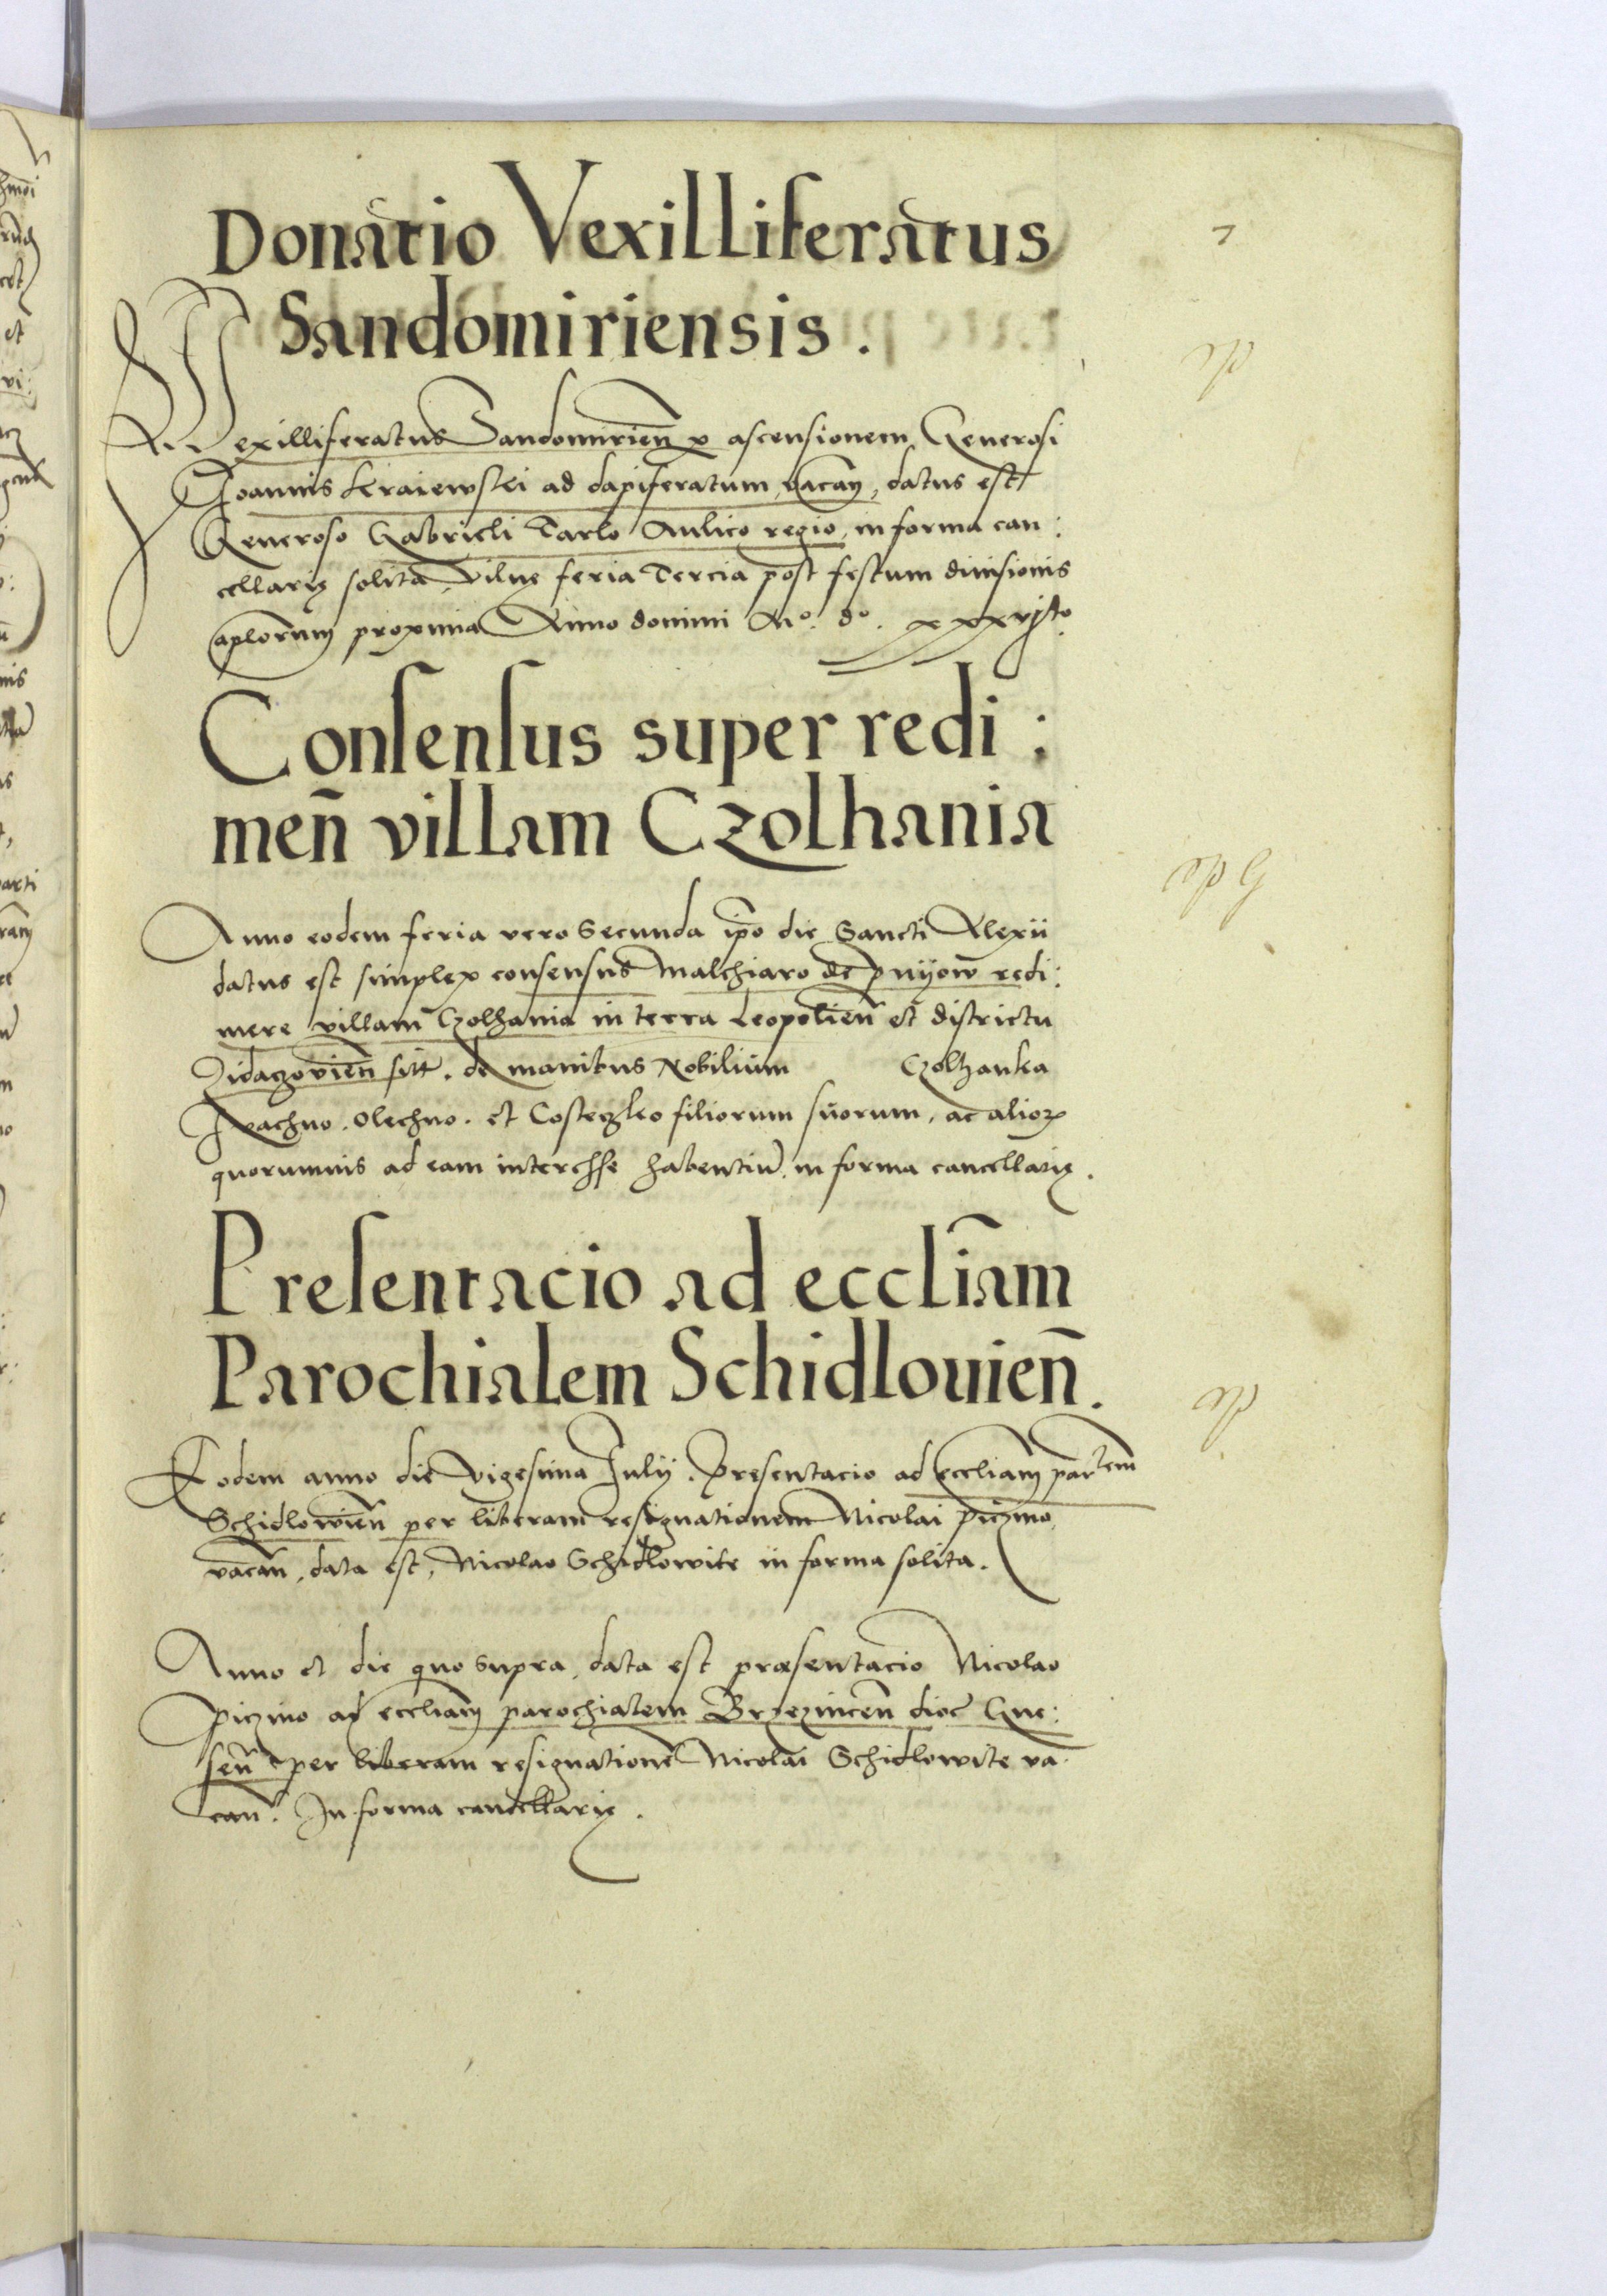 Donatio Vexilliferatus
7
Sandomiriensis.
Vexilliferatus Sandomirien̄ p ascensionem Generosi
Joannis Kraiewski ad dapiferatum, vacan̄, datus est
Generoso Gabrieli Tarlo Aulico regio, in forma can:
cellarię solita, Vilnę feria Tercia post festum diuisionis
ap̄lorum proxima Anno domini Mo. do. xxxvjto.
Consensus super redi:
men̄ villam Czolhania
Anno eodem feria vero Secunda ip̄o die Sancti Alexii
datus est simplex consensus Malchiaro de pnijow redi:
mere villam Czolhania in terra Leopolien̄ et districtu
Zidaczovien̄ sitt. de manibus Nobilium Czolhanka
Iwachno. Olechno. et Costeczko filiorum suorum, ac alioꝝ
quorumuis ad eam interesse habentiū, in forma cancellarię.
Presentacio ad eccl̄iam
Parochialem Schidlouien̄.
Eodem anno die Vigesima Julij. Pręsentacio ad eccl̄iam par̄lem
Schidlowien̄ per liberam resignationem Nicolai piczino
vacan̄, data est, Nicolao Schidlowite in forma solita.
Anno et die quo supra, data est præsentacio Nicolao
piczino ad eccl̄iam parochialem Brzezincen̄ dioc̄ Gne:
sen̄ per liberam resignationē Nicolai Schidlowite va
can̄. In forma cancellarię.